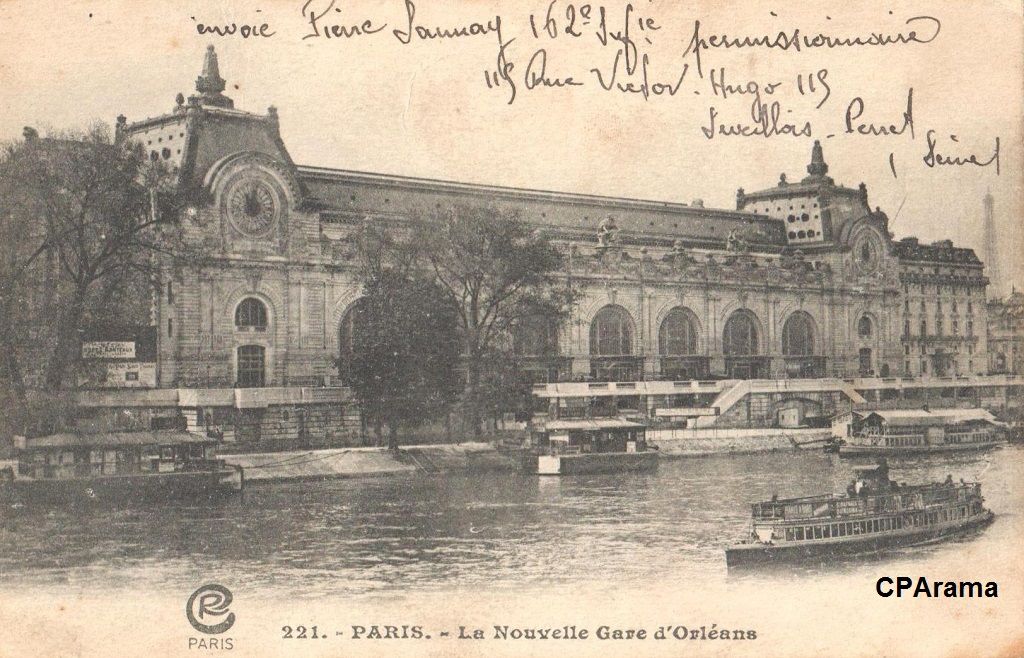 envoie Pierre Launay 162e Infie permissionnaire
115 Rue Victor. Hugo 115
Levallois - Perret
Seine
CPArama
CR
PARIS
221. - PARIS. - La Nouvelle Gare d'Orléans